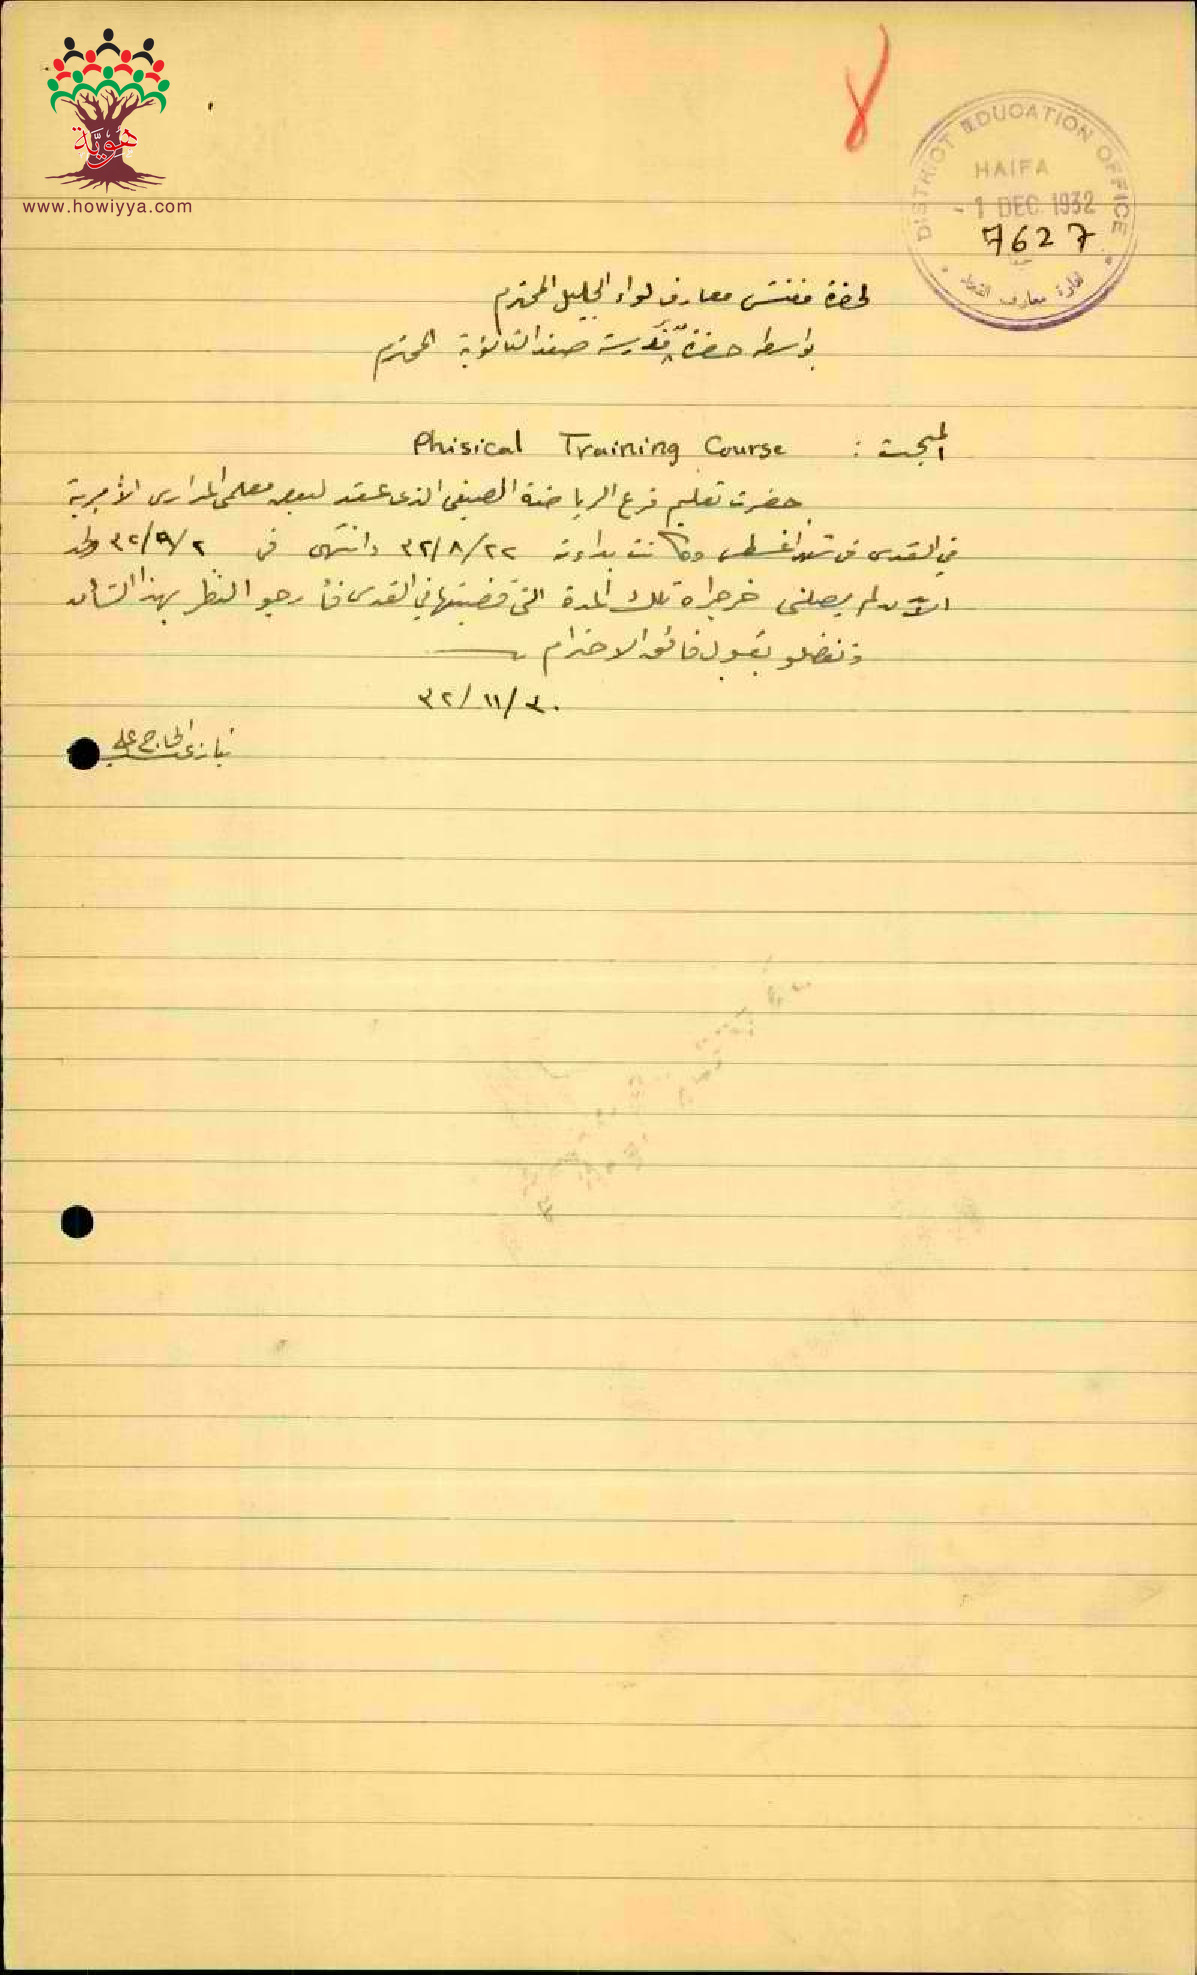 هوية
www.howiyya.com
DISTRICT EDUCATION OFFICE
HAIFA
- 1 DEC. 1932
7627
ادارة معارف
لحضرة مفتش معارف لواء الجليل المحترم
بواسطة حضرة مدرسة صفد الثانوية المحترم
المبحث : Phisical Training Course
حضرت تعليم فرع الرياضة الصيفي الذي عقد لبعض معلمي المدارس الأميرية
في القدس في شهر اغسطس وكانت بداءته ٣٢/٨/٢٢ وانتهى في ٣٢/٩/٢ ولحد
الآن لم يصلني خرجراه تلك المدة التي قضيتها في القدس فأرجو النظر بهذا الشأن
وتفضلو بقبول فائق الاحترام
٣٢/١١/٣٠
نيازي الحاج علي